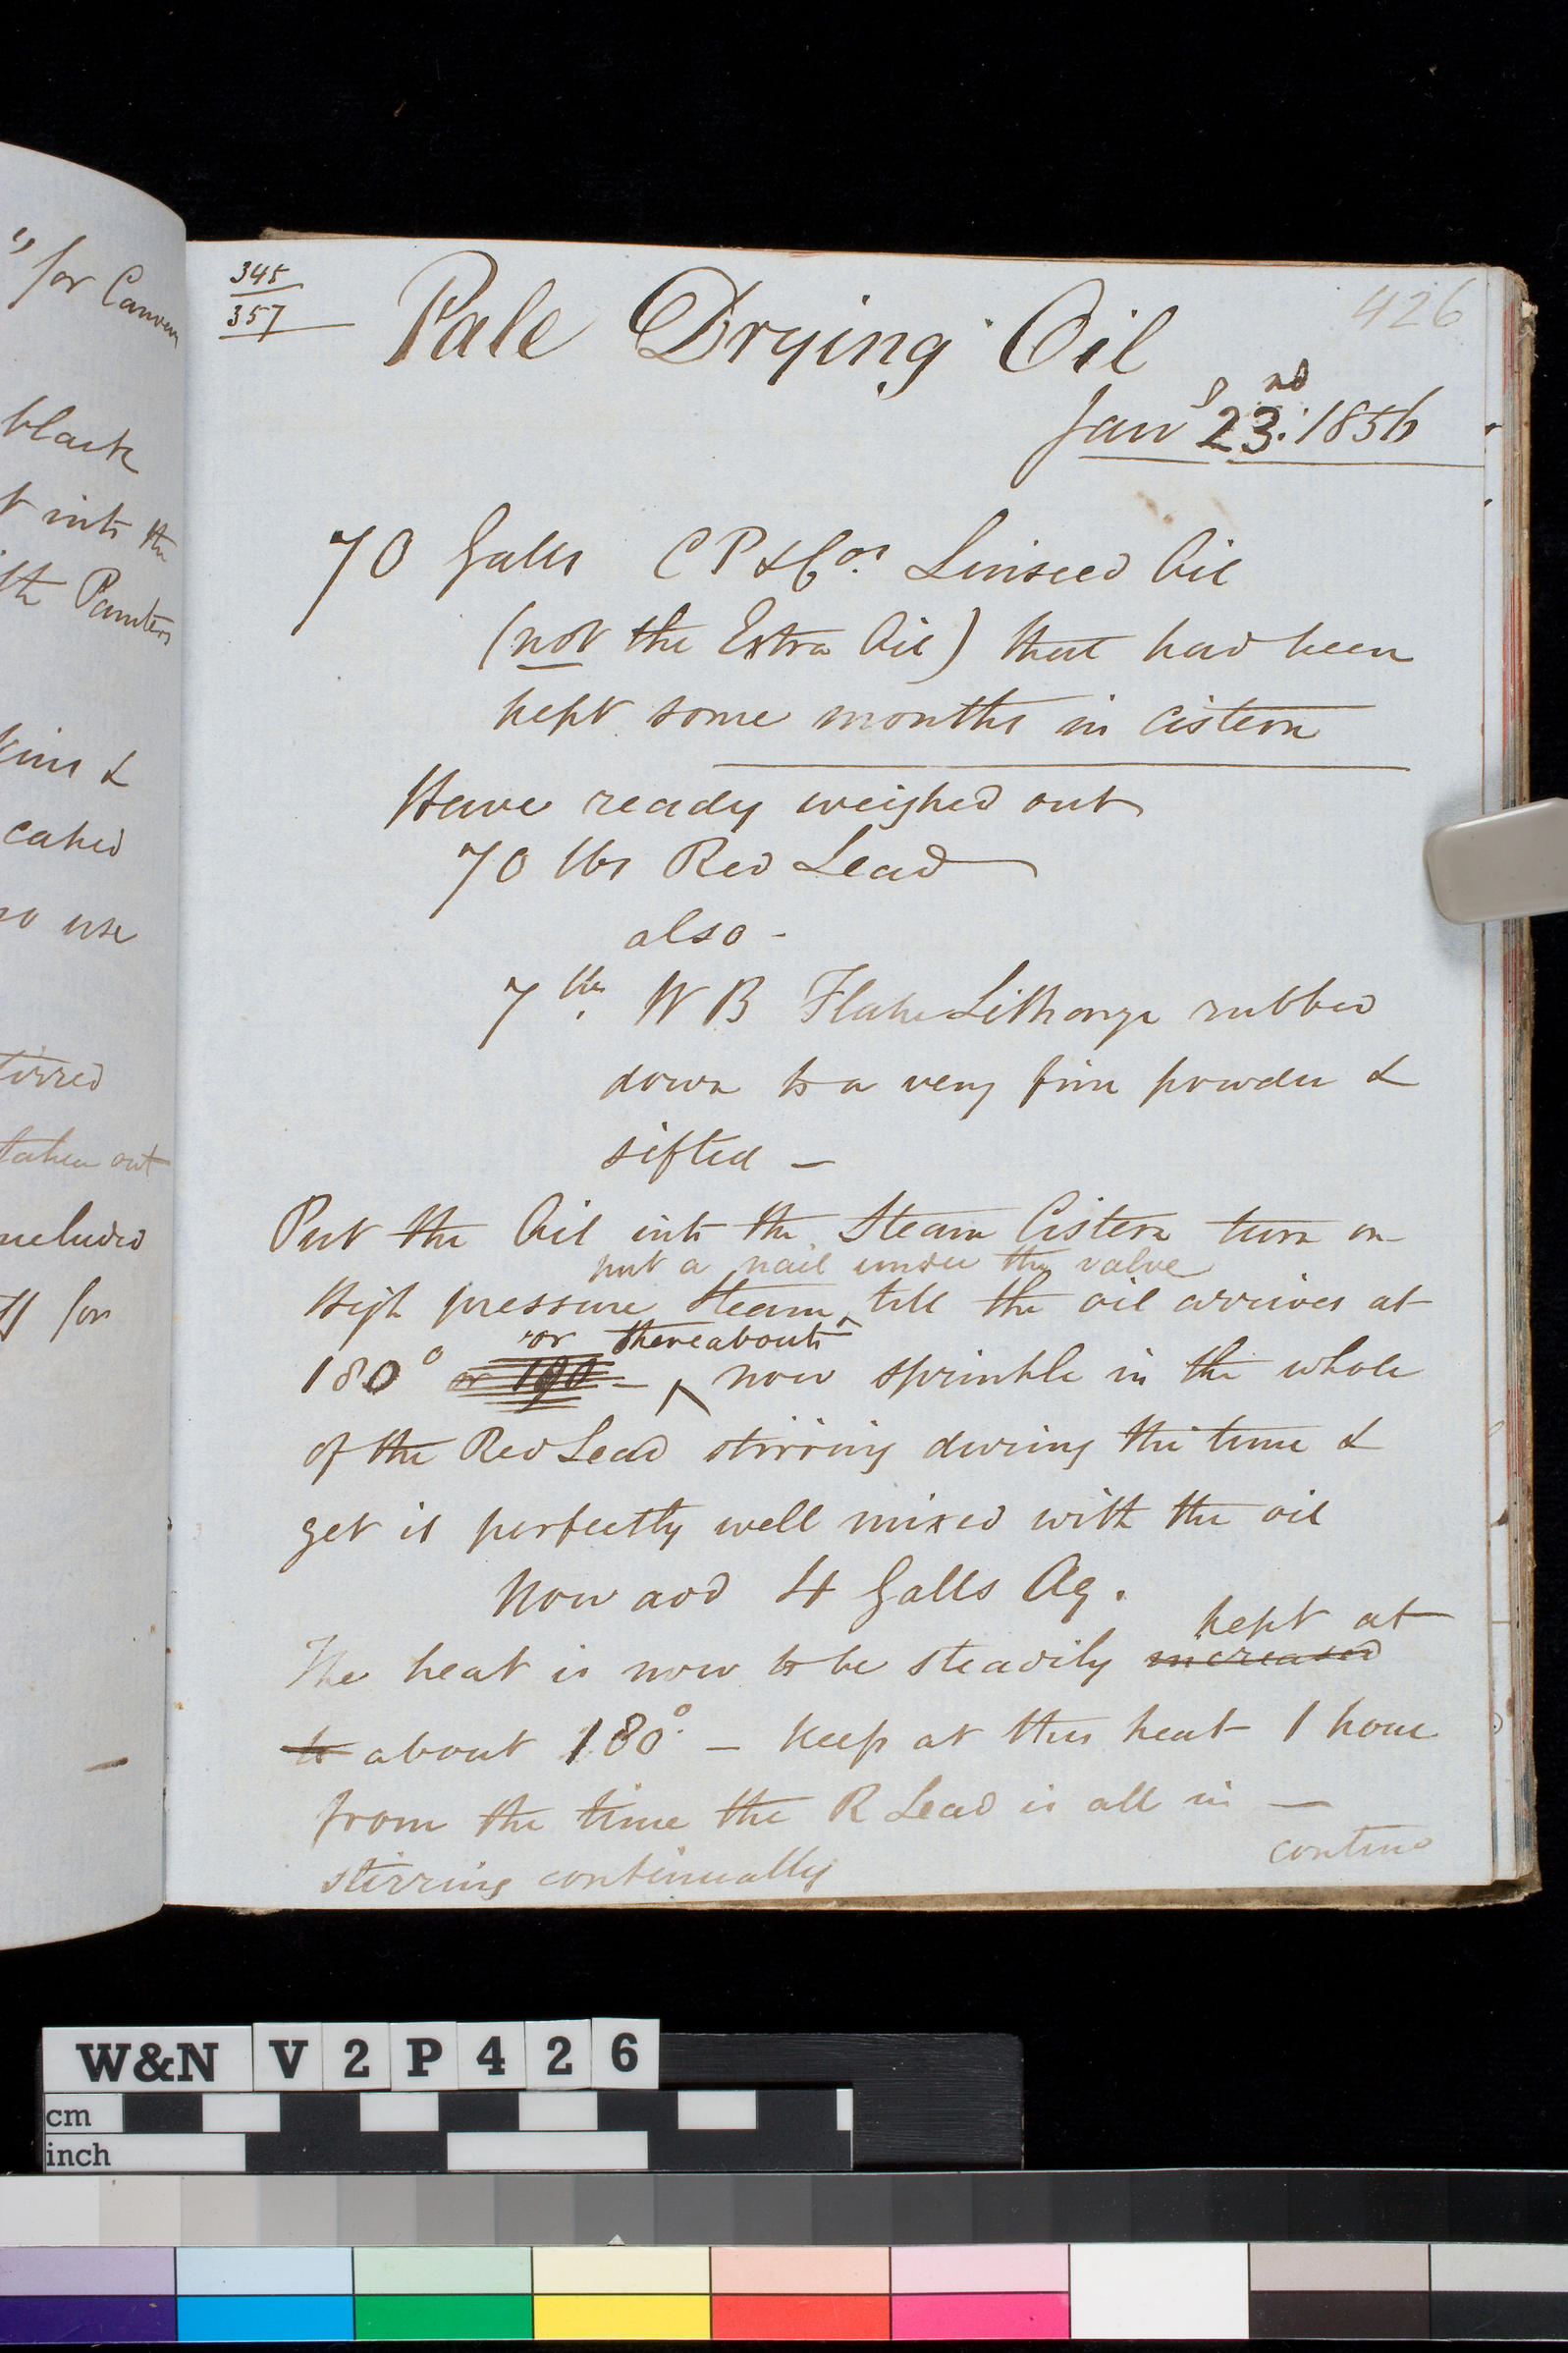 " for Canvas
black
t into the
ith Painters
skins &
caked
no use
stirred
taken out
included
ff for
345
357
426
Pale Drying Oil
Jany 23rd: 1856
70 Galls C P & Cos. Linseed Oil
(not the Extra Oil) that had been
kept some months in cistern
Have ready weighed out
70 lbs Red Lead
also -
7 lbs. W B Flake Litharge rubbed
down to a very fine powder &
sifted —
Put the Oil into the Steam Cistern turn on
put a nail under the valve
High pressure Steam ^ till the oil arrives at
or thereabouts
180° or 190 — ^ now sprinkle in the whole
of the Red Lead stirring during the time &
get it perfectly well mixed with the oil
Now add 4 Galls Aq.
kept at
The heat is now to be steadily increased
to about 180° — keep at this heat 1 hour
from the time the R Lead is all in —
stirring continually
contind
W&N V2P426
cm
inch